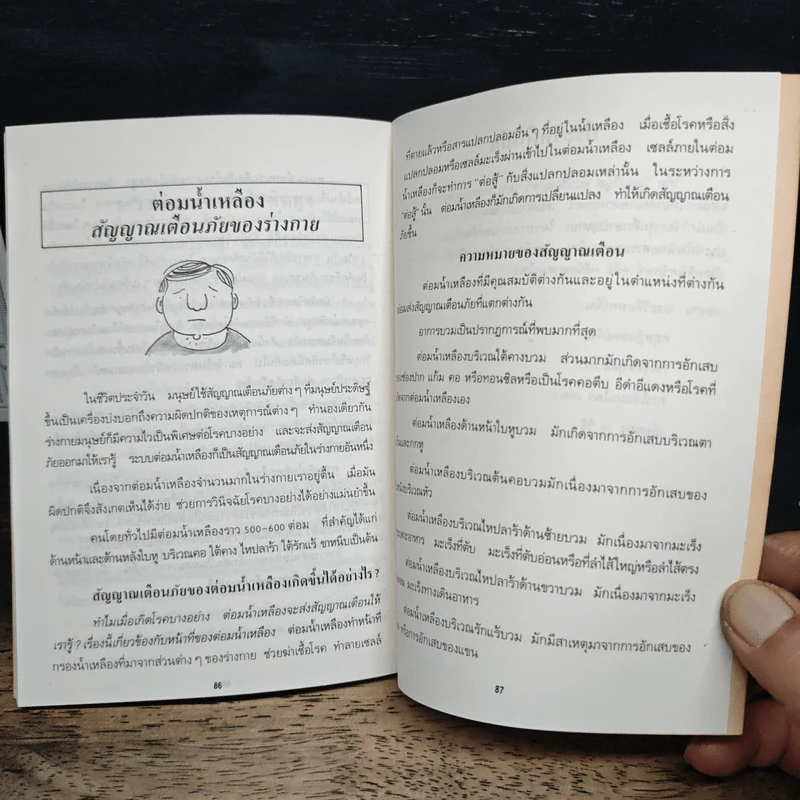 ต่อมน้ำเหลือง
สัญญาณเตือนภัยของร่างกาย
ในชีวิตประจำวัน มนุษย์ใช้สัญญาณเตือนภัยต่าง ๆ ที่มนุษย์ประดิษฐ์
ขึ้นเป็นเครื่องบ่งบอกถึงความผิดปกติของเหตุการณ์ต่าง ๆ ทำนองเดียวกัน
ร่างกายมนุษย์ก็มีความไวเป็นพิเศษต่อโรคบางอย่าง และจะส่งสัญญาณเตือน
ภัยออกมาให้เรารู้ ระบบต่อมน้ำเหลืองก็เป็นสัญญาณเตือนภัยในร่างกายอันหนึ่ง
เนื่องจากต่อมน้ำเหลืองจำนวนมากในร่างกายเราอยู่ตื้น เมื่อมัน
ผิดปกติจึงสังเกตเห็นได้ง่าย ช่วยการวินิจฉัยโรคบางอย่างได้อย่างแม่นยำขึ้น
คนโดยทั่วไปมีต่อมน้ำเหลืองราว 500-600 ต่อม ที่สำคัญได้แก่
ด้านหน้าและด้านหลังใบหู บริเวณคอ ใต้คาง ไหปลาร้า ใต้รักแร้ ขาหนีบเป็นต้น
สัญญาณเตือนภัยของต่อมน้ำเหลืองเกิดขึ้นได้อย่างไร ?
ทำไมเมื่อเกิดโรคบางอย่าง ต่อมน้ำเหลืองจะส่งสัญญาณเตือนให้
เรารู้ ? เรื่องนี้เกี่ยวข้องกับหน้าที่ของต่อมน้ำเหลือง ต่อมน้ำเหลืองทำหน้าที่
กรองน้ำเหลืองที่มาจากส่วนต่าง ๆ ของร่างกาย ช่วยฆ่าเชื้อโรค ทำลายเซลล์
86
ที่ตายแล้วหรือสารแปลกปลอมอื่น ๆ ที่อยู่ในน้ำเหลือง เมื่อเชื้อโรคหรือสิ่ง
แปลกปลอมหรือเซลล์มะเร็งผ่านเข้าไปในต่อมน้ำเหลือง เซลล์ภายในต่อม
น้ำเหลืองก็จะทำการ "ต่อสู้" กับสิ่งแปลกปลอมเหล่านั้น ในระหว่างการ
"ต่อสู้" นั้น ต่อมน้ำเหลืองก็มักเกิดการเปลี่ยนแปลง ทำให้เกิดสัญญาณเตือน
ภัยขึ้น
ความหมายของสัญญาณเตือน
ต่อมน้ำเหลืองที่มีคุณสมบัติต่างกันและอยู่ในตำแหน่งที่ต่างกัน
ย่อมส่งสัญญาณเตือนภัยที่แตกต่างกัน
อาการบวมเป็นปรากฏการณ์ที่พบมากที่สุด
ต่อมน้ำเหลืองบริเวณใต้คางบวม ส่วนมากมักเกิดจากการอักเสบ
ช่องปาก แก้ม คอ หรือทอนซิลหรือเป็นโรคคอตีบ อีดำอีแดงหรือโรคที่
เกิดจากต่อมน้ำเหลืองเอง
ต่อมน้ำเหลืองด้านหน้าใบหูบวม มักเกิดจากการอักเสบบริเวณตา
และกกหู
ต่อมน้ำเหลืองบริเวณต้นคอบวมมักเนื่องมาจากการอักเสบของ
บริเวณหัว
ต่อมน้ำเหลืองบริเวณไหปลาร้าด้านซ้ายบวม มักเนื่องมาจากมะเร็ง
กระเพาะอาหาร มะเร็งที่ตับ มะเร็งที่ตับอ่อนหรือที่ลำไส้ใหญ่หรือลำไส้ตรง
ต่อมน้ำเหลืองบริเวณไหปลาร้าด้านขวาบวม มักเนื่องมาจากมะเร็ง
มะเร็งทางเดินอาหาร
ต่อมน้ำเหลืองบริเวณรักแร้บวม มักมีสาเหตุมาจากการอักเสบของ
หรือการอักเสบของแขน
87